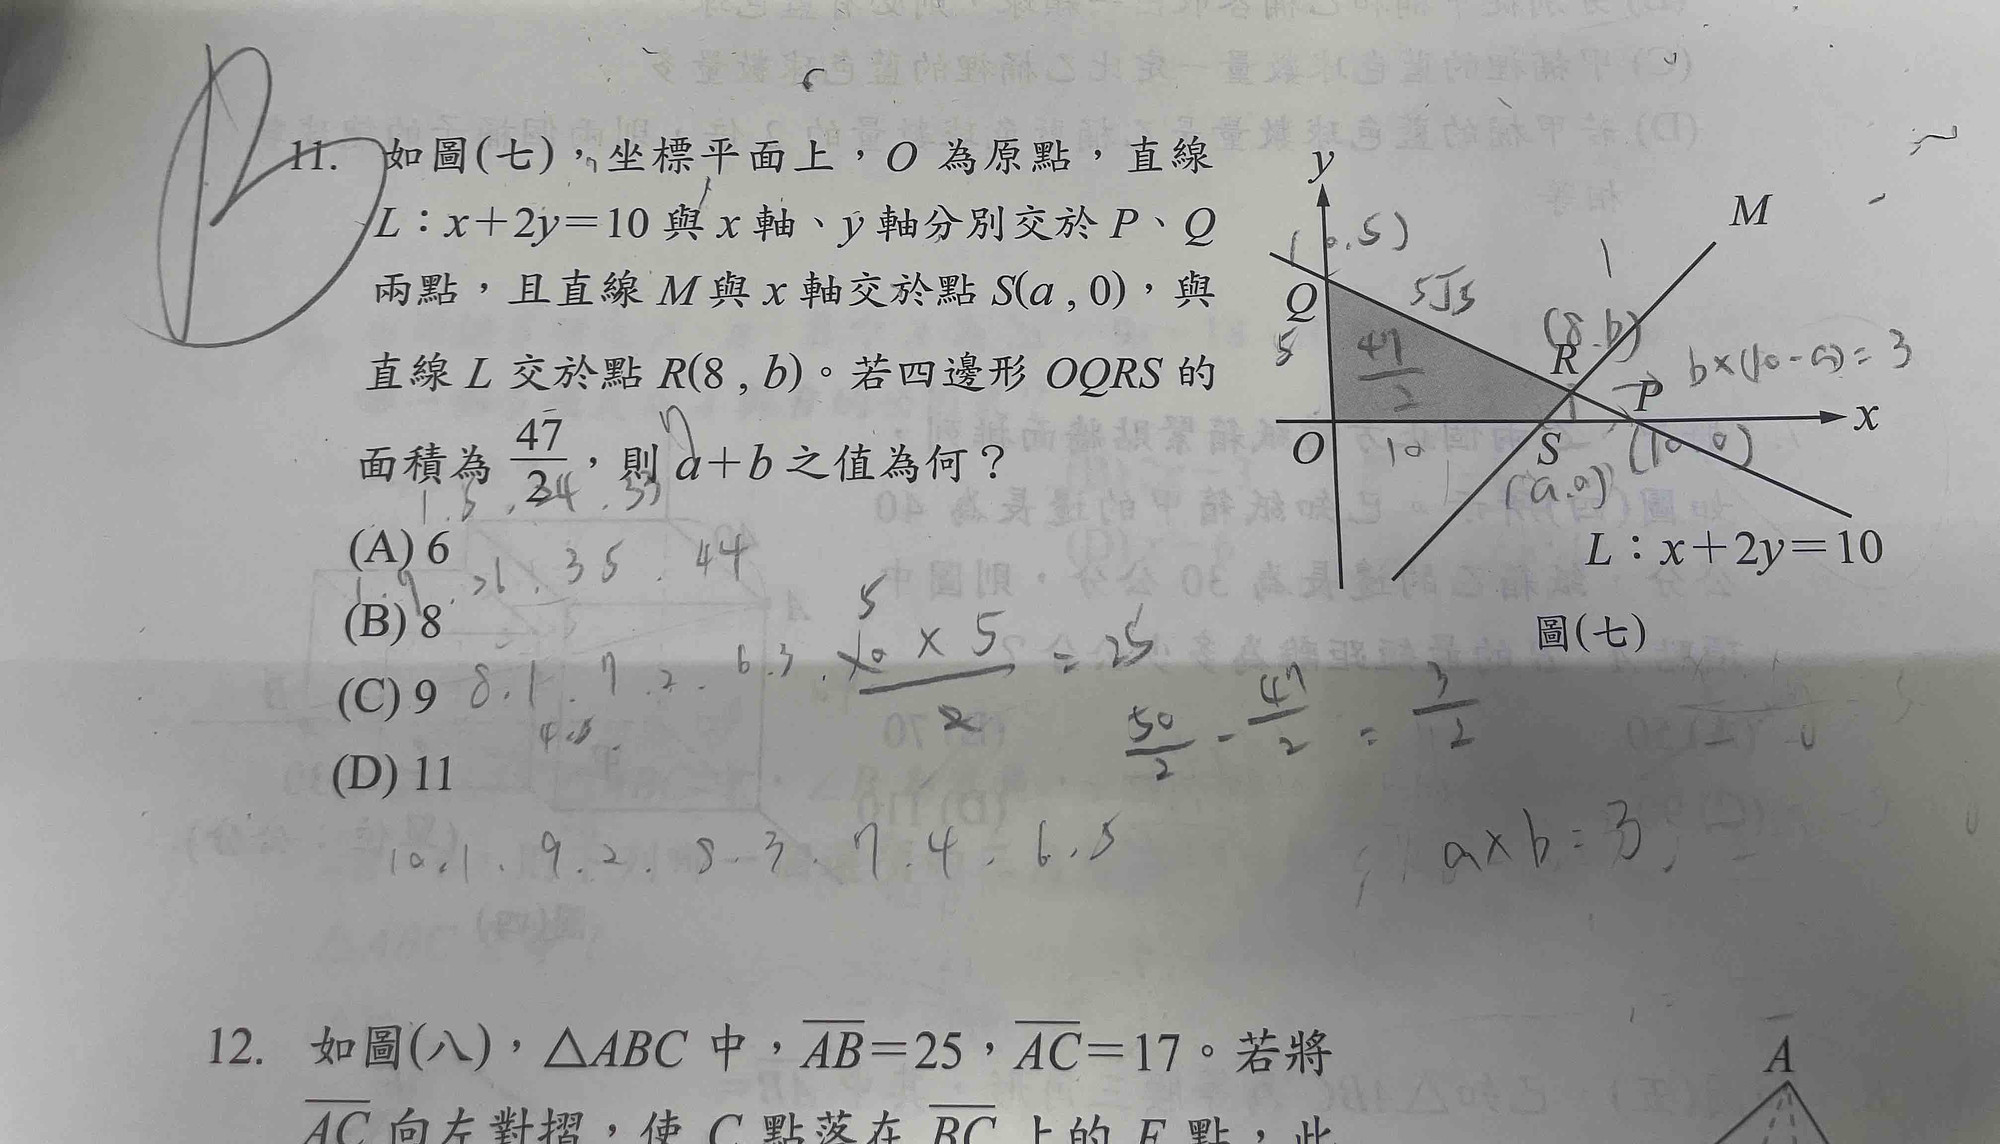 11. 如圖(七),坐標平面上,O 為原點,直線
L:x+2y=10 與 x 軸、y 軸分別交於 P、Q
兩點,且直線 M 與 x 軸交於點 S(a , 0),與
直線 L 交於點 R(8 , b)。若四邊形 OQRS 的
面積為 47/2,則 a+b 之值為何?
(A) 6
(B) 8
(C) 9
(D) 11
y
M
Q
5
5√5
(8.b)
R
b×(10-a)=3
47/2
P
x
O
10
S
(10.0)
(a.0)
L:x+2y=10
圖(七)
35 . 44
8.1 . 7.2 . 6.3 .
10 × 5 / 2 = 25
5
50/2 - 47/2 = 3/2
a×b=3
10.1 . 9.2 . 8.3 . 7.4 . 6.5
12. 如圖(八),△ABC 中,AB=25,AC=17。若將
A
AC 向左對摺,使 C 點落在 BC 上的 E 點,此